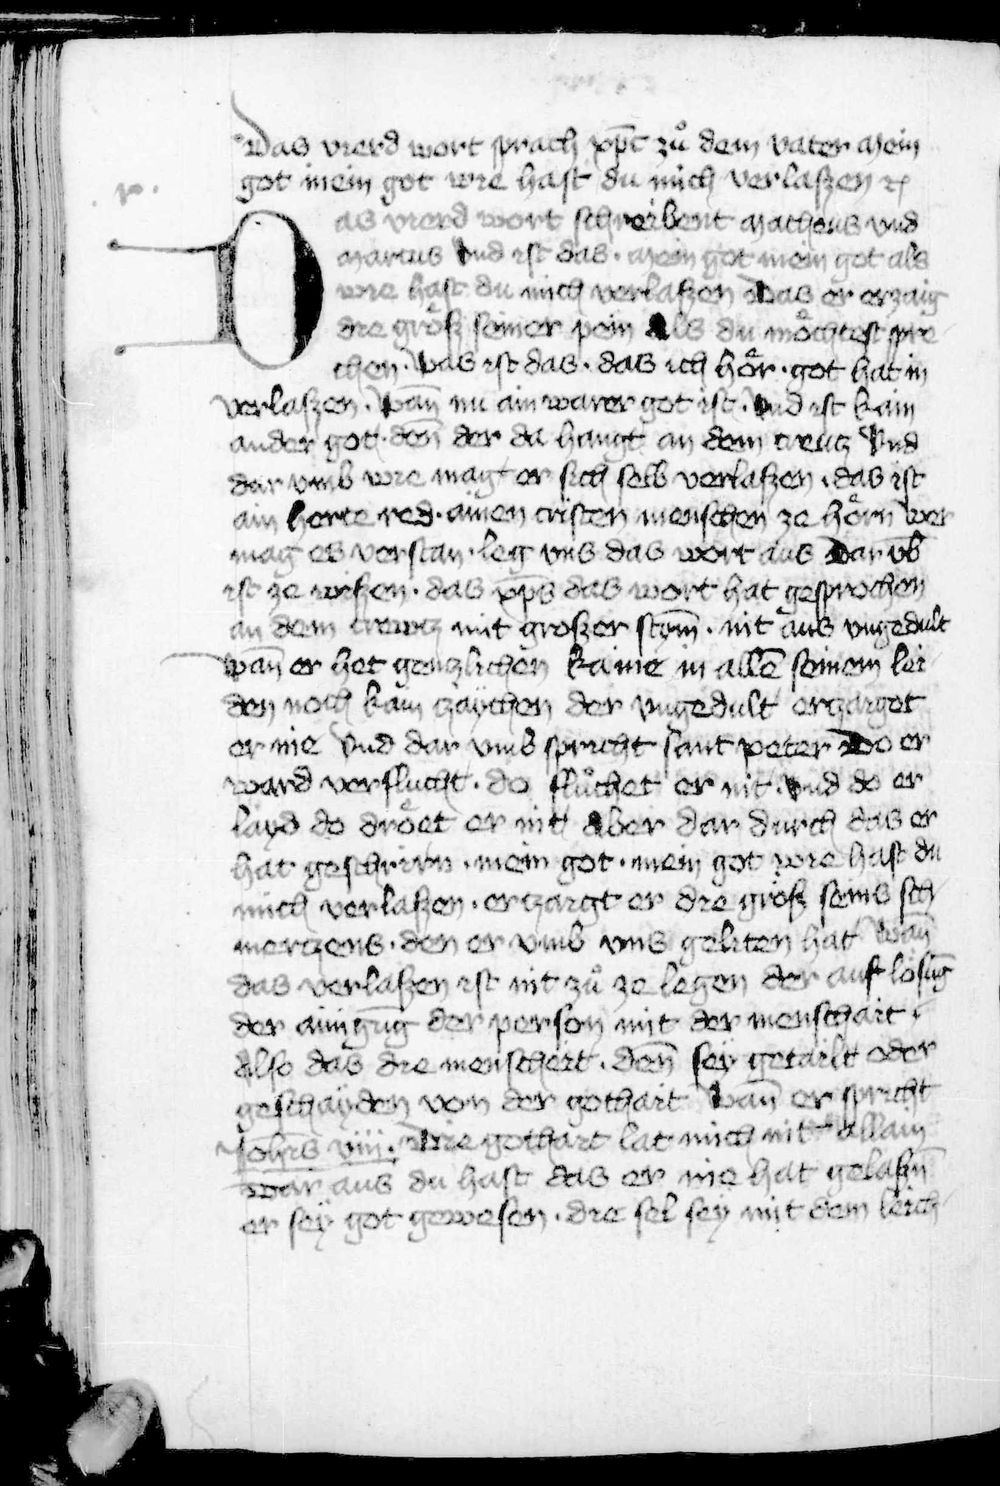 Das vierd wort sprach xp̄c zů dem vater Mein
got mein got wie hast du mich verlaßen ꝛc
Das vierd wort schreibent Matheus vnd
Marcus Vnd ist das · Mein got mein got als
wie hast du mich verlaßen Das er erzaig
die größ seiner pein Als du möchtest spre
chen · Was ist das · das ich hör · got hat in
verlaßen · Wan̄ nu ain warer got ist · Vnd ist kain
ander got · den̄ der da hangt an dem creutz Vnd
dar vmb wie magt er sich selb verlaßen · das ist
ain herte red · ainen cristen menschen ze hörn̄ Wer
mag es verstan · leg vns das wort aus Dar vb̄
ist ze wißen · das xp̄s das wort hat gesprochen
an dem crewtz mit großer stym̄ · nit aus vngedult
Wan̄ er het gentzlichen kaine in alle̅ seinem lei
den noch kain zaÿchen der vngedult erzaiget
er nie Vnd dar vmb spricht sant peter Do er
ward verflucht · do flůchet er nit · Vnd do er
layd do dröet er nit Aber dar durch das er
hat geschrirn · mein got · mein got wie hast du
mich verlaßen · ertzaigt er die größ seins sch
mertzens · den er vmb vns geliten hat Wan̄
das verlaßen ist nit zů ze legen der auf lösu̅g
der ainigu̅g der person mit der menschait ·
Also das die menscheit · den̄ seÿ getailt oder
geschaÿden von der gothait Wan̄ er spricht
Joh̅is viii · Die gothait lat mich nit allain
War aus du hast das er nie hat gelaßn̄
er seÿ got gewesen · die sel seÿ mit dem leich